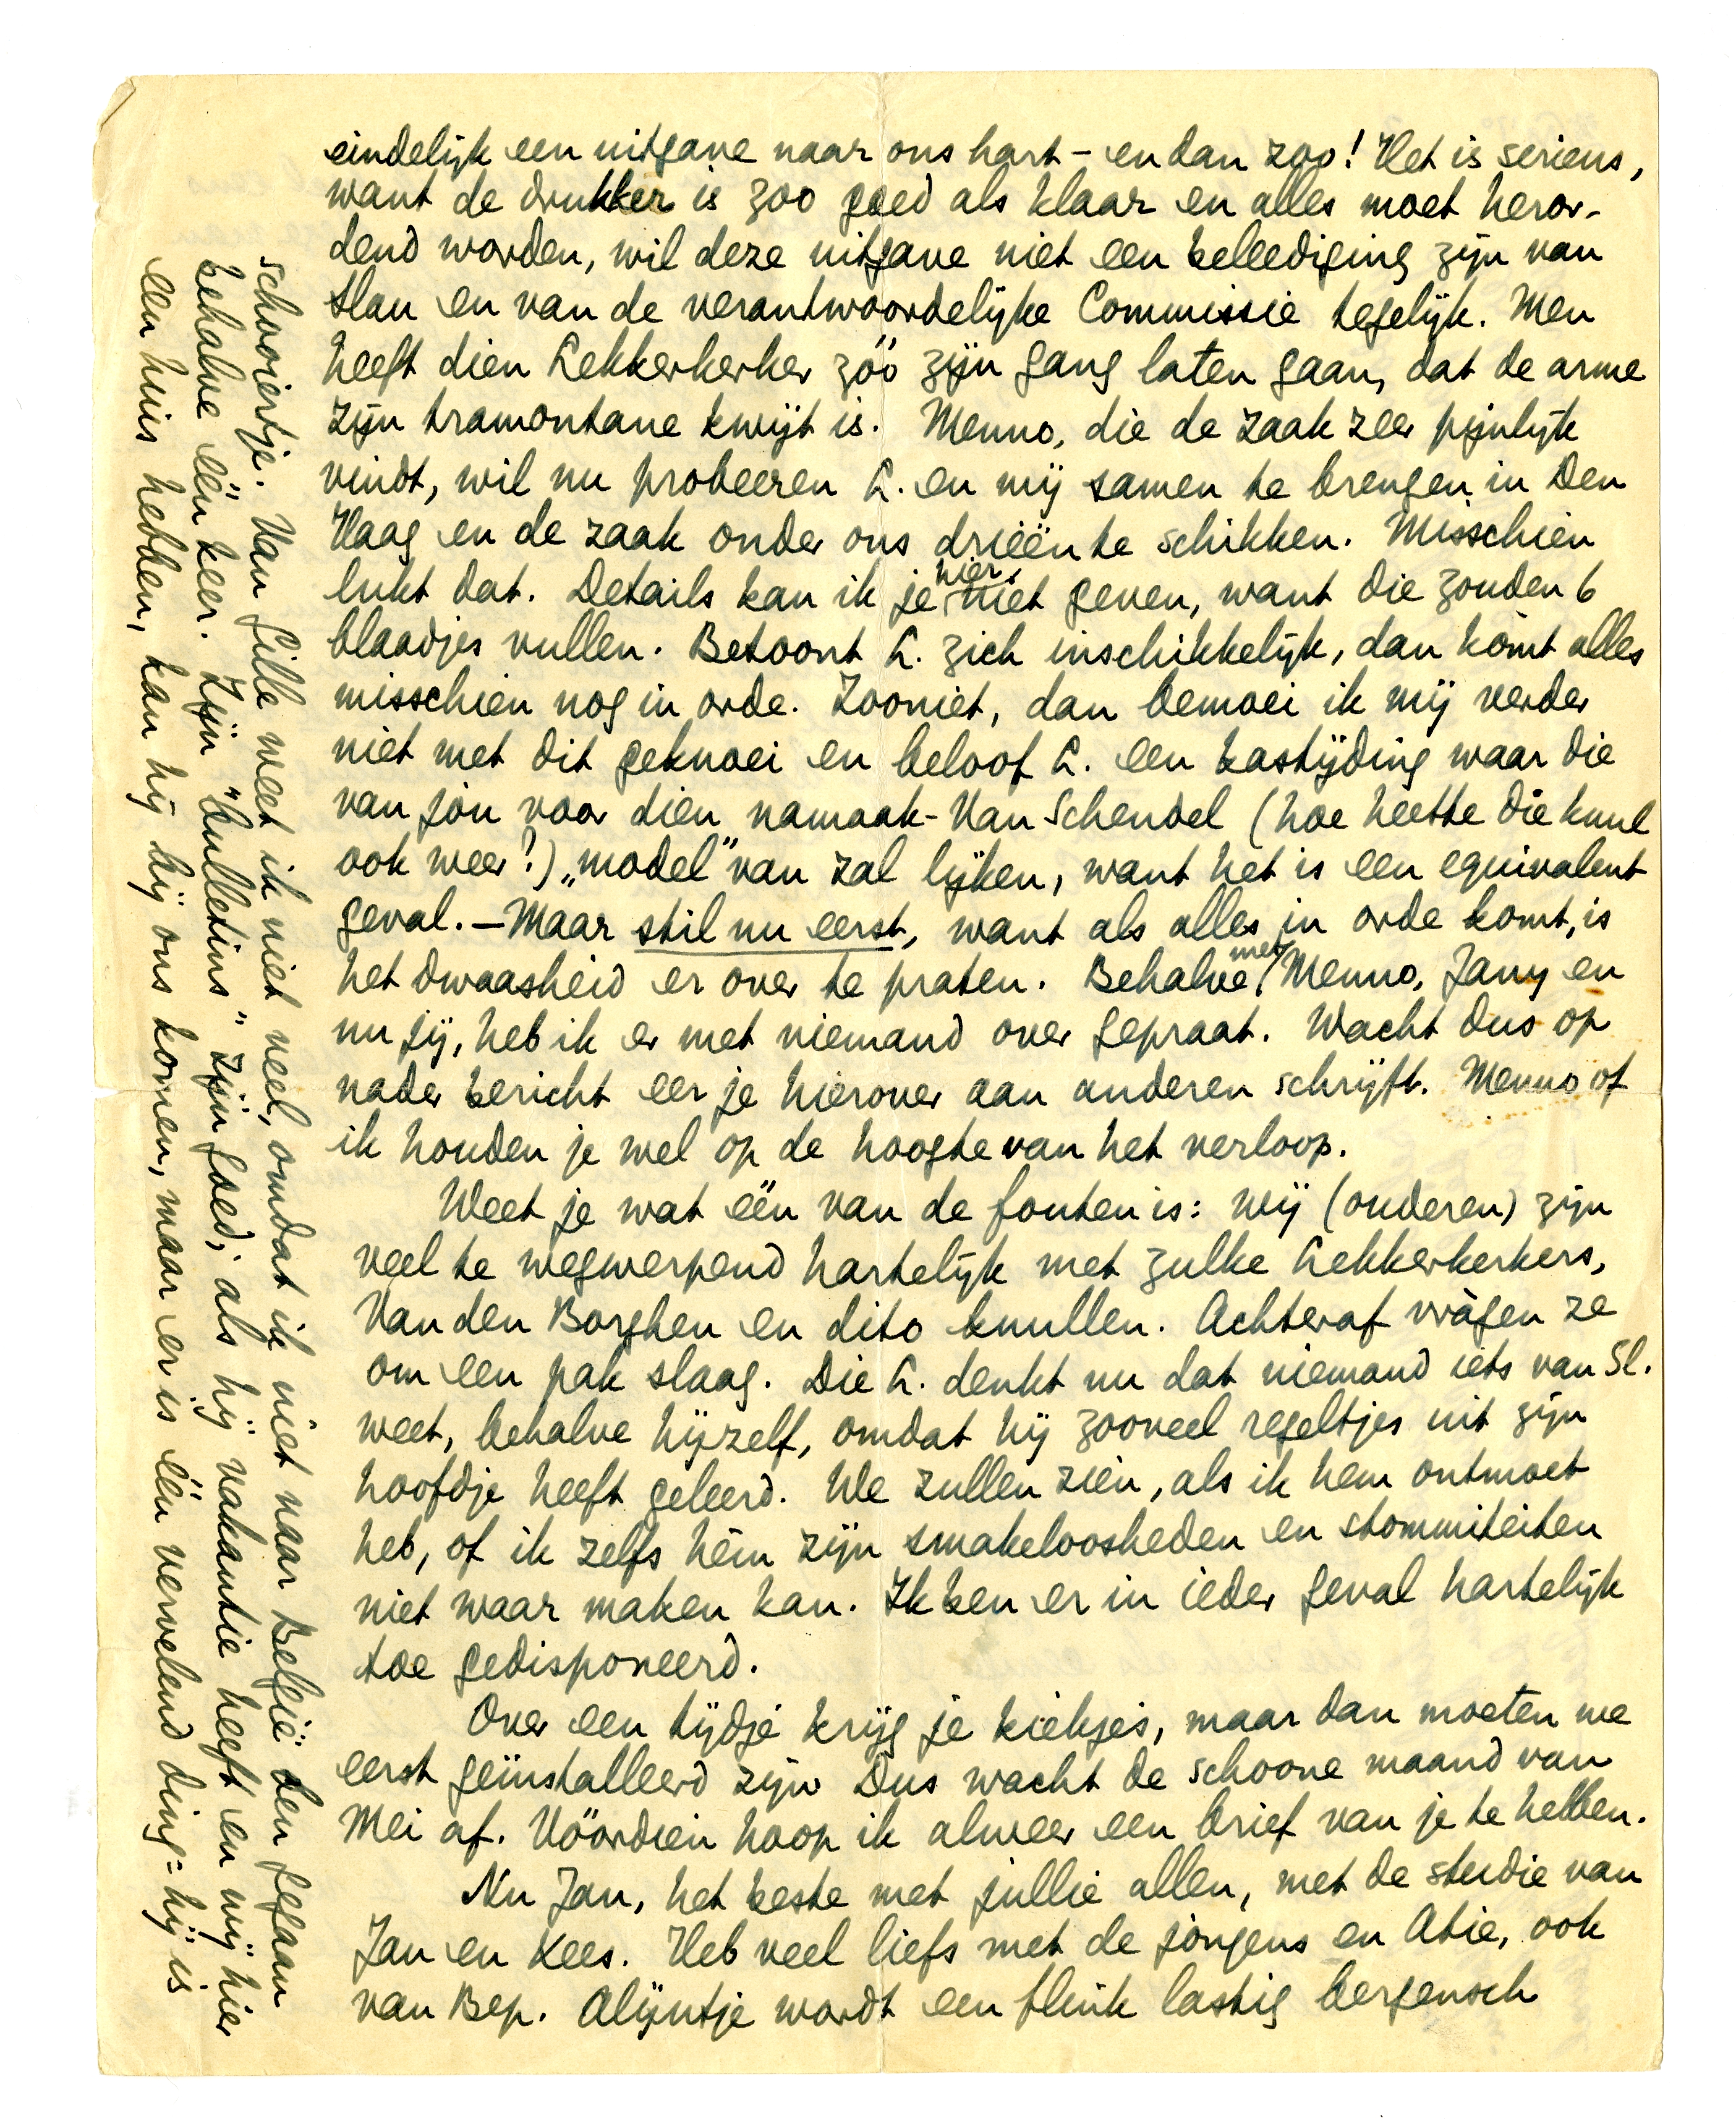 eindelijk een uitgave naar ons hart – en dan zoo! Het is serieus,
want de drukker is zoo goed als klaar en alles moet heror-
dend worden, wil deze uitgave niet een beleediging zijn van
Slau en van de verantwoordelijke Commissie tegelijk. Men
heeft dien Lekkerkerker zóó zijn gang laten gaan, dat de arme
zijn tramontane kwijt is. Menno, die de zaak zeer pijnlijk
vindt, wil nu probeeren L. en mij samen te brengen in Den
Haag en de zaak onder ons drieën te schikken. Misschien
lukt dat. Details kan ik je hier niet geven, want die zouden 6
blaadjes vullen. Betoont L. zich inschikkelijk, dan komt alles
misschien nog in orde. Zooniet, dan bemoei ik mij verder
niet met dit geknoei en beloof L. een kastijding waar die
van jou voor dien namaak-Van Schendel (hoe heette die knul
ook weer?) „model” van zal lijken, want het is een equivalent
geval. – Maar stil nu eerst, want als alles in orde komt, is
het dwaasheid er over te praten. Behalve met Menno, Jany en
nu jij, heb ik er met niemand over gepraat. Wacht dus op
nader bericht eer je hierover aan anderen schrijft. Menno of
ik houden je wel op de hoogte van het verloop.
Weet je wat één van de fouten is: wij (ouderen) zijn
veel te wegwerpend hartelijk met zulke Lekkerkerkers,
Van den Borghen en dito knullen. Achteraf vràgen ze
om een pak slaag. Die L. denkt nu dat niemand iets van Sl.
weet, behalve hijzelf, omdat hij zooveel regeltjes uit zijn
hoofdje heeft geleerd. We zullen zien, als ik hem ontmoet
heb, of ik zelfs hém zijn smakeloosheden en stommiteiten
niet waar maken kan. Ik ben er in ieder geval hartelijk
toe gedisponeerd.
Over een tijdje krijg je kiekjes, maar dan moeten we
eerst geïnstalleerd zijn. Dus wacht de schoone maand van
Mei af. Vóórdien hoop ik alweer een brief van je te hebben.
Nu Jan, het beste met jullie allen, met de studie van
Jan en Kees. Heb veel liefs met de jongens en Atie, ook
van Bep. Alijntje wordt een flink lastig bergensch
schooiertje. Van Gille weet ik niet veel, omdat ik niet naar België ben gegaan
behalve één keer. Zijn „bulletins” zijn goed; als hij vakantie heeft en wij hier
een huis hebben, kan hij bij ons komen, maar er is één vervelend ding: hij is